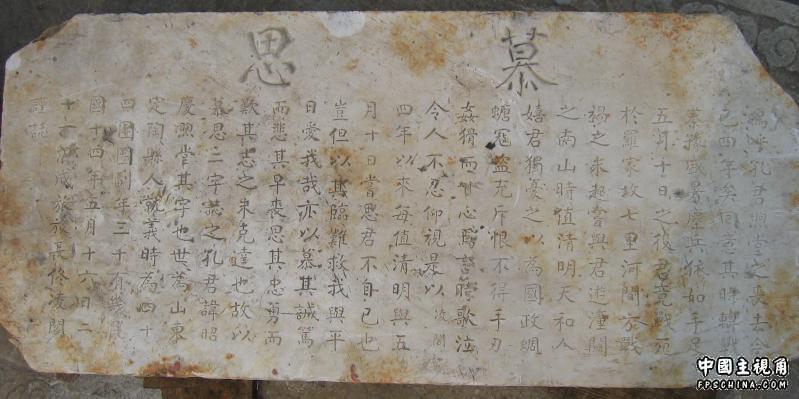 慕思
嗚呼孔君煦堂之喪去今
已四年矣其時轉戰
秦豫如手足
五月十日之役君竟戰死
於羅家坟七里河間方戰
禍之未起嘗與君遊潼關
之南山時值清明天和人
嬉君獨憂之以為國政蜩
螗寇盜充斥恨不得手刃
姦猾而甘心焉言時歌泣
令人不忍仰視是以凌閣
四年以來每值清明與五
月十日嘗思君不自已也
豈但以其臨難救我與平
日愛我哉亦以慕其誠篤
而悲其早喪思其忠勇而
歎其志之未克達也故以
慕思二字誌之孔君諱昭
慶煦堂其字也世為山東
定陶縣人就義時為四十
四團團副年三十有幾民
國十四年五月十六日二
十混成旅旅長佟凌閣
謹誌
中國主視角
FPSCHINA.COM